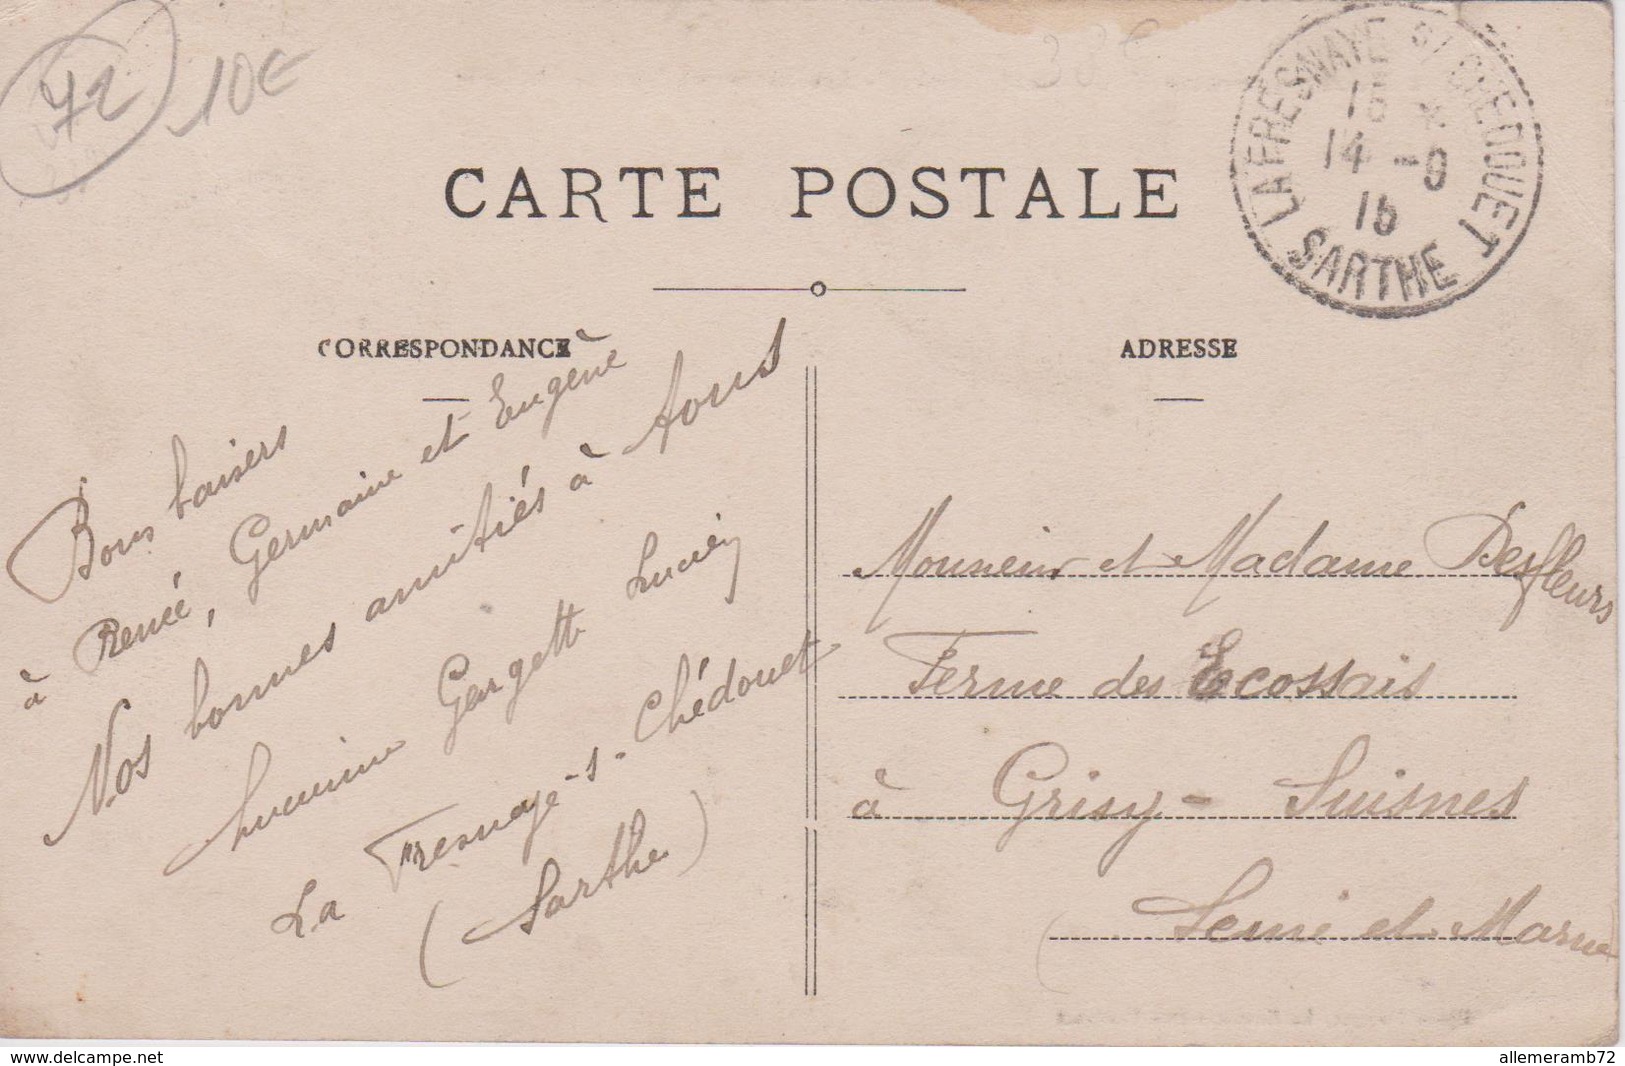 72
10€
38€
LA FRESNAYE S/ CHEDOUET
15 *
14 -9
15
SARTHE
CARTE POSTALE
CORRESPONDANCE
ADRESSE
Bons baisers
à Renée, Germaine et Eugène
Nos bonnes amitiés à tous
Lucienne Georgette Lucien
La Fresnaye-s-Chédouet
(Sarthe)
Monsieur et Madame Desfleurs
Ferme des Ecossais
à Grisy-Suisnes
(Seine et Marne
www.delcampe.net
allemeramb72